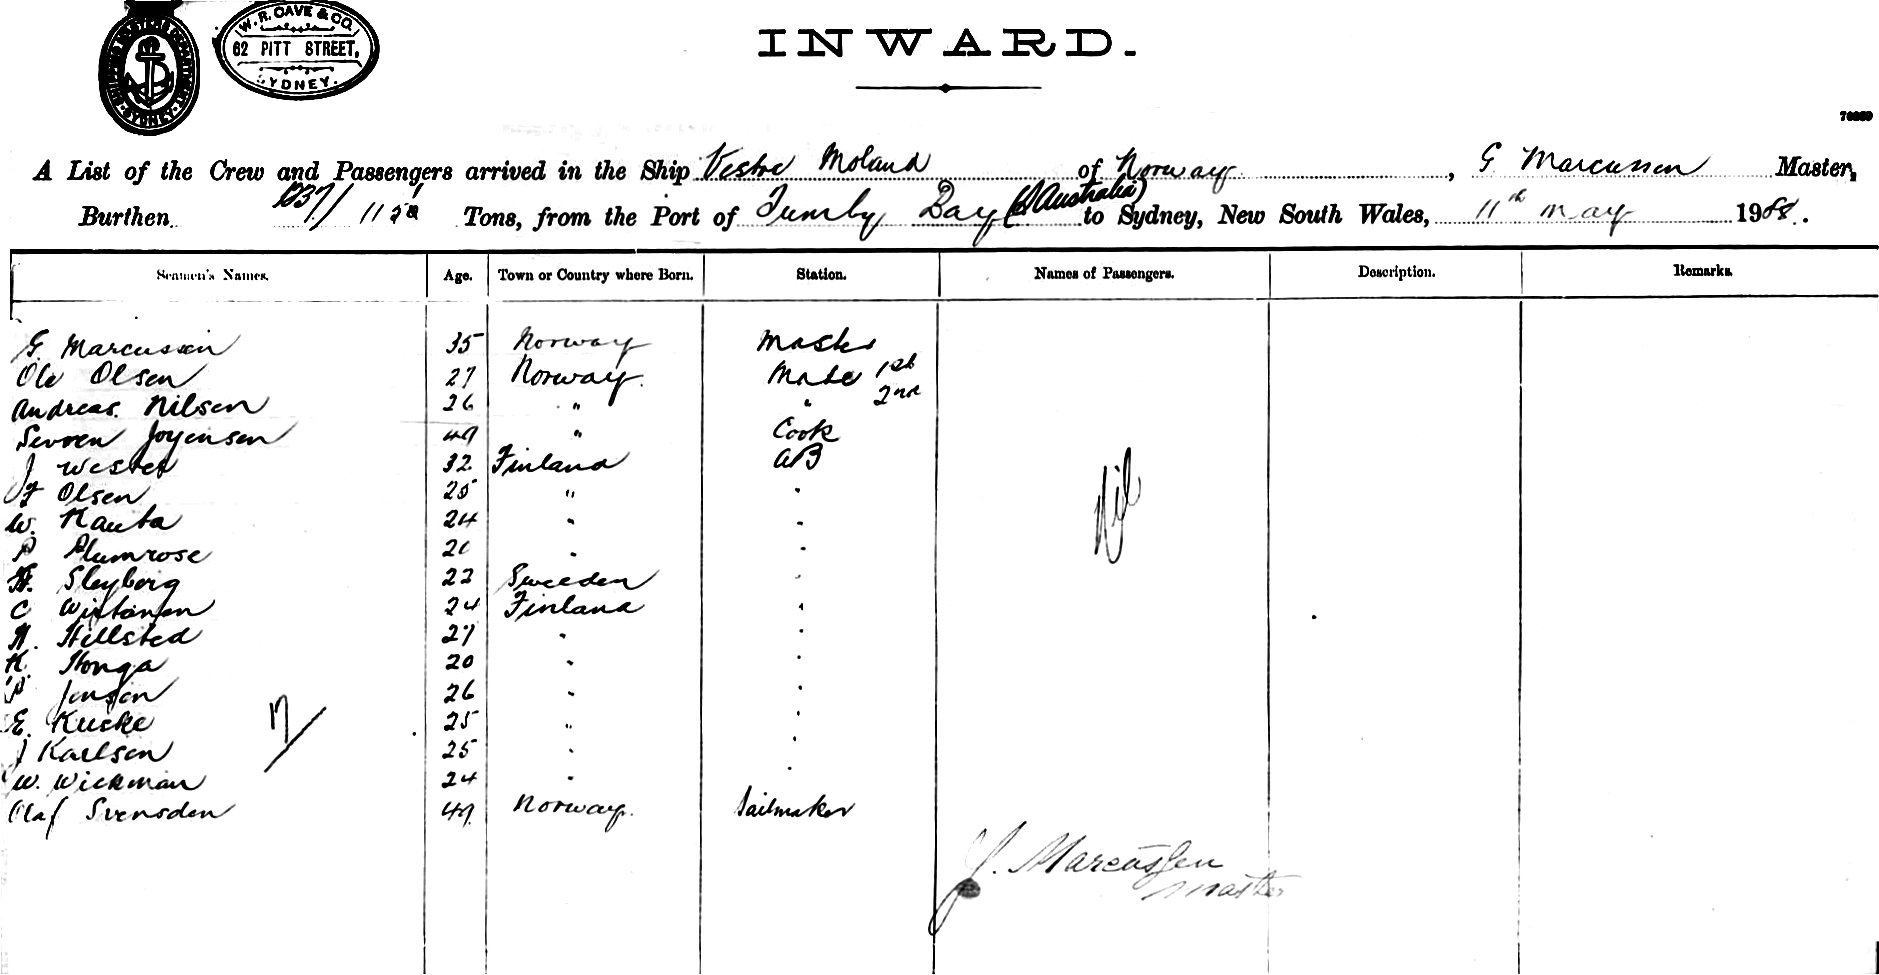 W. R. CAVE & CO.
62 PITT STREET,
SYDNEY.
SYDNEY
INWARD.
A List of the Crew and Passengers arrived in the Ship Vestre Moland of Norway, G Marcussen Master,
Burthen Tons, from the Port of Tumby Bay (S Australia) to Sydney, New South Wales, 11th May 1908.
Seamen's Names. Age. Town or Country where Born. Station. Names of Passengers. Description. Remarks.
G. Marcussen 35 Norway Master
Ole Olsen 27 Norway. Mate 1st
Andreas Nilsen 26 " " 2nd
Sevren Joyensen 49 " Cook
J Wester 32 Finland AB
Nil
F Olsen 25 "
W. Kauta 24 "
P Plumrose 21 "
H. Sleyborg 22 Sweeden
C Wirtanen 24 Finland
N. Hellsted 27 "
K. Honga 20 "
P Jensen 26 "
E. Kuske 25 "
J Karlsen 25 "
W. Wickman 24 "
Olaf Svensden 49. Norway. Sailmaker
17/
G. Marcussen
Master